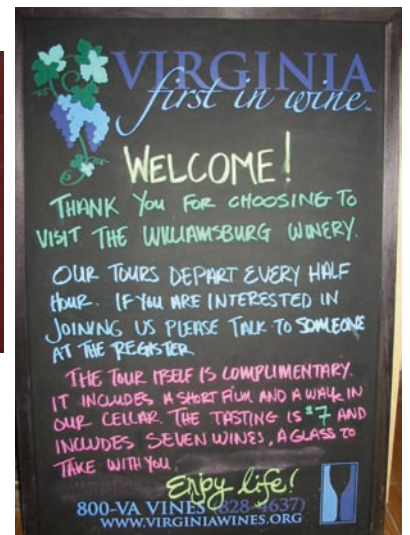 VIRGINIA
first in wine™
WELCOME!
THANK YOU FOR CHOOSING TO
VISIT THE WILLIAMSBURG WINERY.
OUR TOURS DEPART EVERY HALF
HOUR. IF YOU ARE INTERESTED IN
JOINING US PLEASE TALK TO SOMEONE
AT THE REGISTER
THE TOUR ITSELF IS COMPLIMENTARY.
IT INCLUDES A SHORT FILM AND A WALK IN
OUR CELLAR. THE TASTING IS $7 AND
INCLUDES SEVEN WINES, A GLASS TO
TAKE WITH YOU.
Enjoy life!
800-VA VINES (828-4637)
WWW.VIRGINIAWINES.ORG